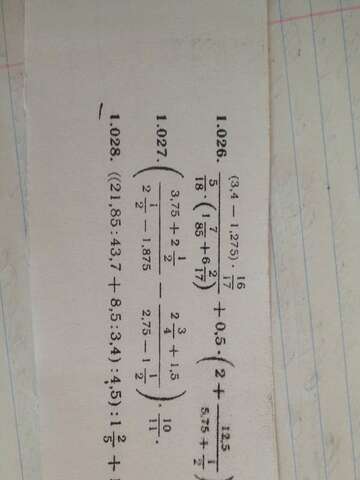 1.026. \frac{(3,4 − 1,275) · \frac{16}{17}}{\frac{5}{18} · (1 \frac{7}{85} + 6 \frac{2}{17})} + 0,5 · (2 + \frac{12,5}{5,75 + \frac{1}{2}})
1.027. (\frac{3,75 + 2 \frac{1}{2}}{2 \frac{1}{2} − 1,875} − \frac{2 \frac{3}{4} + 1,5}{2,75 − 1 \frac{1}{2}}) · \frac{10}{11}.
1.028. ((21,85 : 43,7 + 8,5 : 3,4) : 4,5) : 1 \frac{2}{5} +